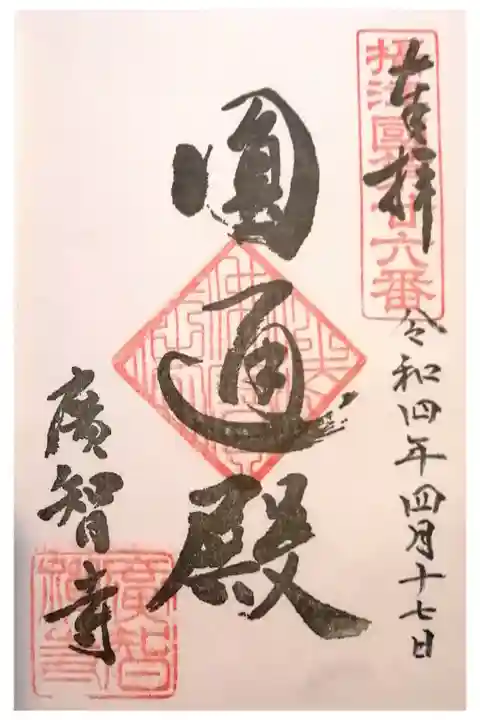 奉拝
令和四年四月十七日
圓通殿
廣智寺
六番
廣智